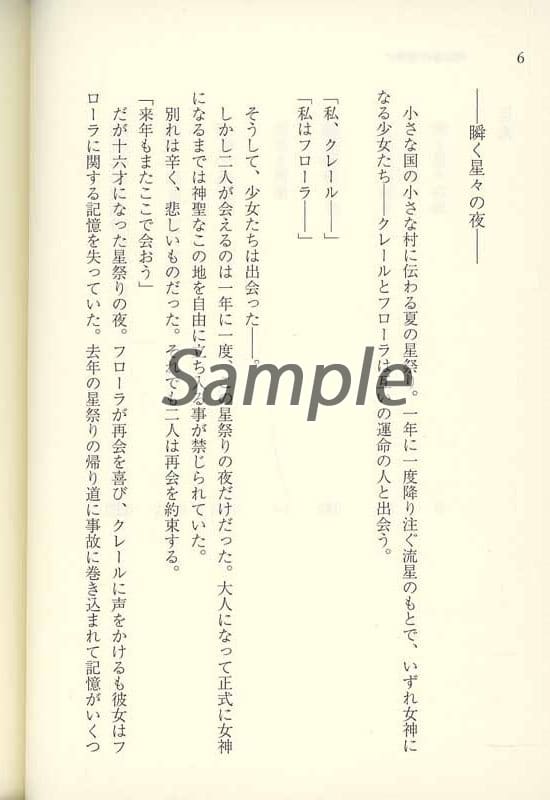 6
――瞬く星々の夜――
小さな国の小さな村に伝わる夏の星祭り。一年に一度降り注ぐ流星のもとで、いずれ女神に
なる少女たち――クレールとフローラは互いの運命の人と出会う。
「私、クレール――」
「私はフローラ――」
そうして、少女たちは出会った――。
しかし二人が会えるのは一年に一度、この星祭りの夜だけだった。大人になって正式に女神
になるまでは神聖なこの地を自由に立ち入る事が禁じられていた。
別れは辛く、悲しいものだった。それでも二人は再会を約束する。
「来年もまたここで会おう」
だが十六才になった星祭りの夜。フローラが再会を喜び、クレールに声をかけるも彼女はフ
ローラに関する記憶を失っていた。去年の星祭りの帰り道に事故に巻き込まれて記憶がいくつ
Sample